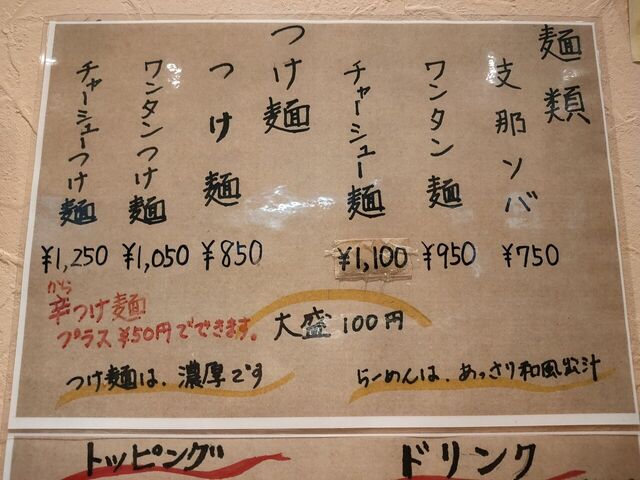 麺類
支那ソバ
¥750
ワンタン麺
¥950
チャーシュー麺
¥1,100
つけ麺
つけ麺
¥850
ワンタンつけ麺
¥1,050
チャーシューつけ麺
¥1,250
から
辛つけ麺
プラス¥50円でできます。
大盛100円
つけ麺は、濃厚です
らーめんは、あっさり和風出汁
トッピング
ドリンク